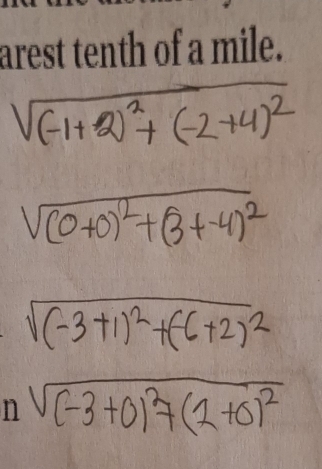 arest tenth of a mile.
√(-1+2)²+(-2+4)²
√(0+0)²+(3+-4)²
√(-3+1)²+(-6+2)²
n √(-3+0)²+(1+0)²